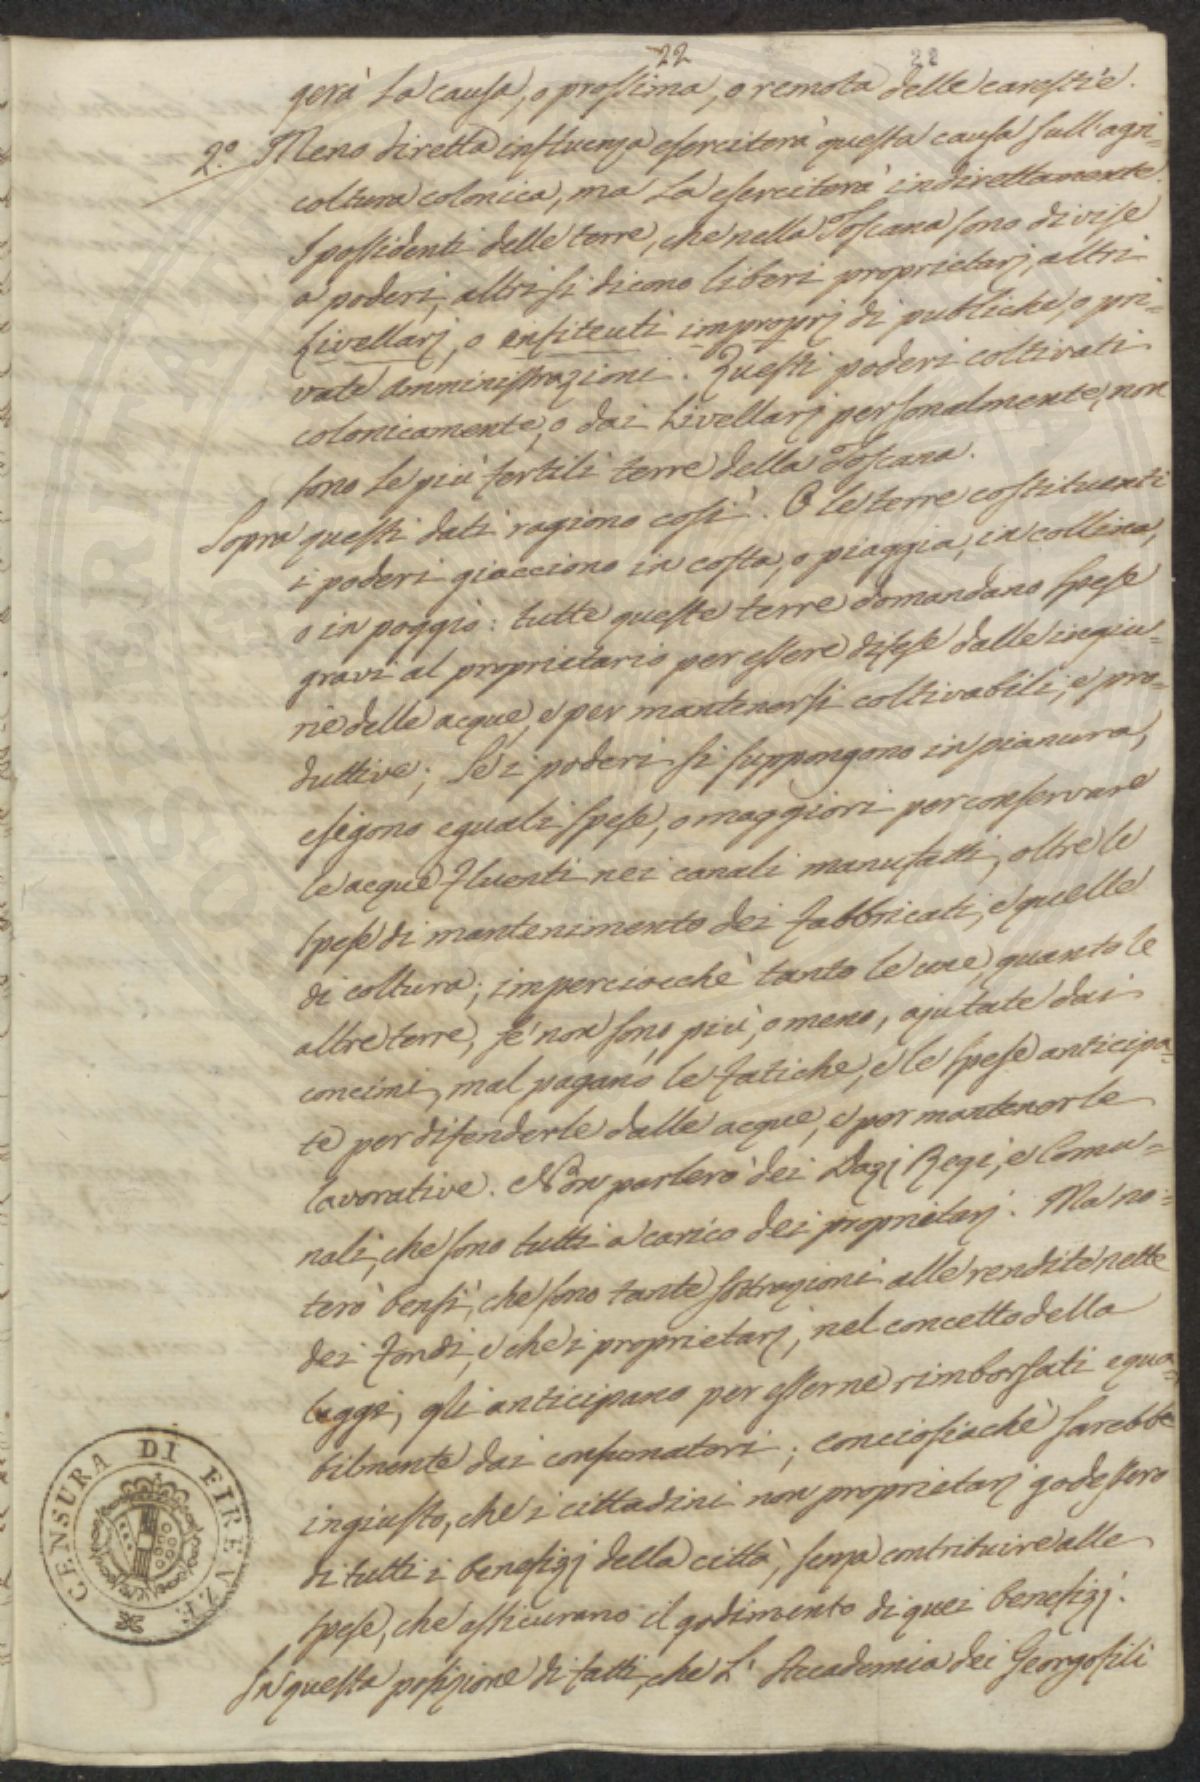 22 22
gerà la causa, o prossima, o remota delle carestie.
2.° Meno diretta influenza eserciterà questa causa sull'agri=
coltura colonica, ma la eserciterà indirettamente.
I possidenti delle terre, che nella Toscana sono divise
a poderi, altri si dicono liberi proprietarj, altri
livellarj, o enfiteuti improprj di publiche, o pri=
vate amministrazioni. Questi poderi coltivati
colonicamente, o dai Livellarj personalmente, non
sono le più fertili terre della Toscana.
Sopra questi dati ragiono così. O le terre costituenti
i poderi giacciono in costa, o piaggia, in collina,
o in poggio: tutte queste terre domandano spese
gravi al proprietario per essere difese dalle ingiu=
rie delle acque, e per mantenersi coltivabili, e pro=
duttive; Se i poderi si suppongono in pianura,
esigono eguali spese, o maggiori per conservare
le acque fluenti nei canali manufatti, oltre le
spese di mantenimento dei fabbricati, e quelle
di coltura; imperciocchè tanto le une, quanto le
altre terre, se non sono, più, o meno, ajutate dai
concimi, mal pagano le fatiche, e le spese anticipa=
te per difenderle dalle acque, e per mantenerle
lavorative. Non parlerò dei Dazj Regi, e Comu=
nali, che sono tutti a carico dei proprietarj. Ma no=
terò bensì, che sono tante sottrazioni alle rendite nette
dei fondi, e che i proprietarj, nel concetto della
legge, gli anticipano per esserne rimborsati equa=
bilmente dai consumatori; conciosiachè sarebbe
ingiusto, che i cittadini non proprietarj godessero
di tutti i benefizj della città, senza contribuire alle
spese, che assicurano il godimento di quei benefizj.
In questa posizione di fatti, che l'Accademia dei Georgofili
CENSURA DI FIRENZE